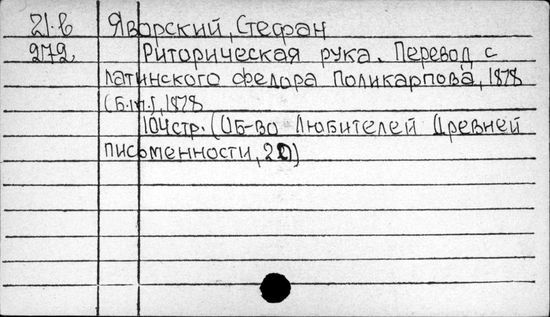 21.b Яворский, Стефан
272 Риторическая рука. Перевод с
латинского федора Поликарпова, 1878
(б.м.), 1878
104стр. (Об-во Любителей Древней
письменности, 20)